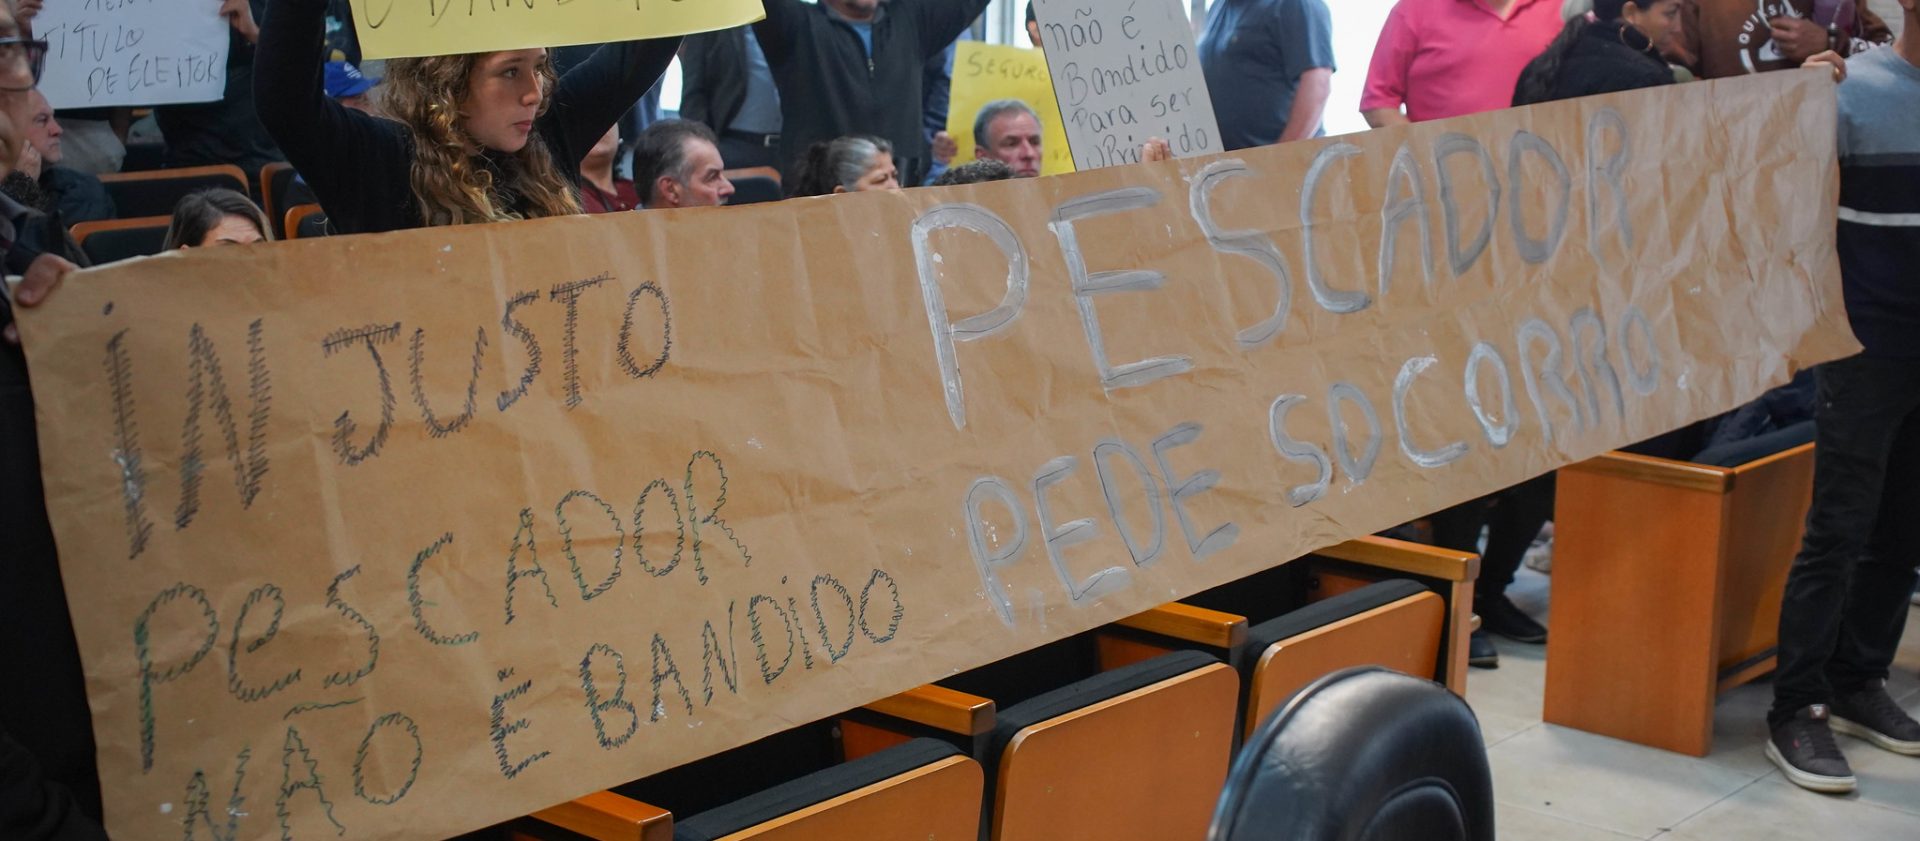 TÍTULO
DE ELEITOR
O BANDIDO
SEGURO
não é
Bandido
Para ser
INJUSTO
PESCADOR
NÃO É BANDIDO
PESCADOR
PEDE SOCORRO